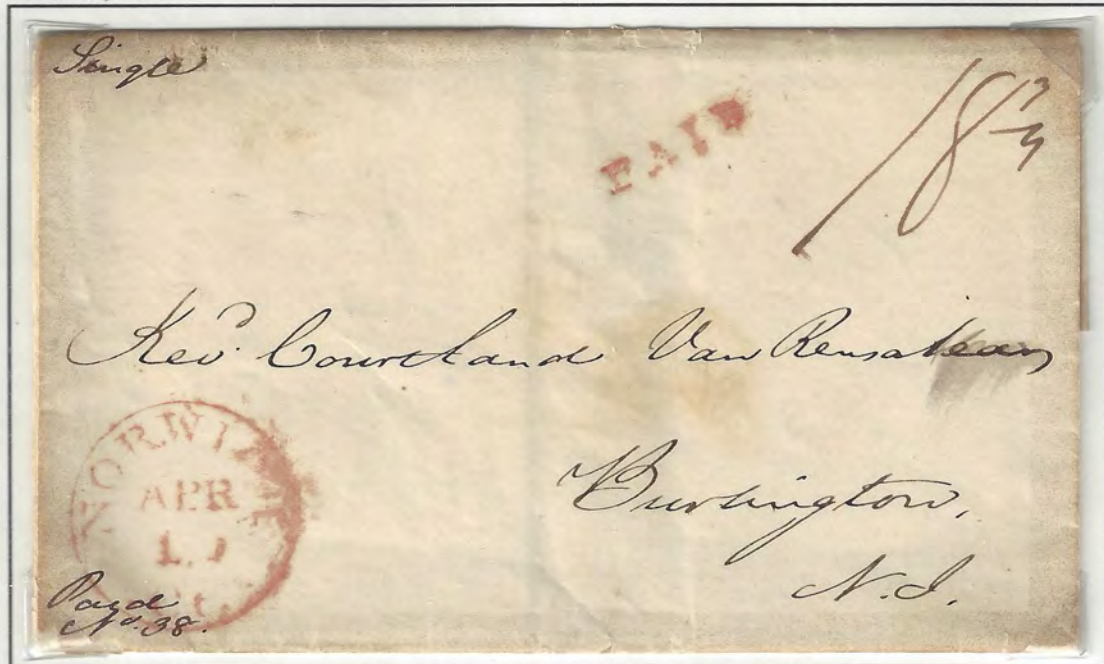 Single
PAID
18 3/4
Rev.d Courtland Van Rensalear
Burlington,
N.J.
NORWICH
APR
Paid
No. 38.